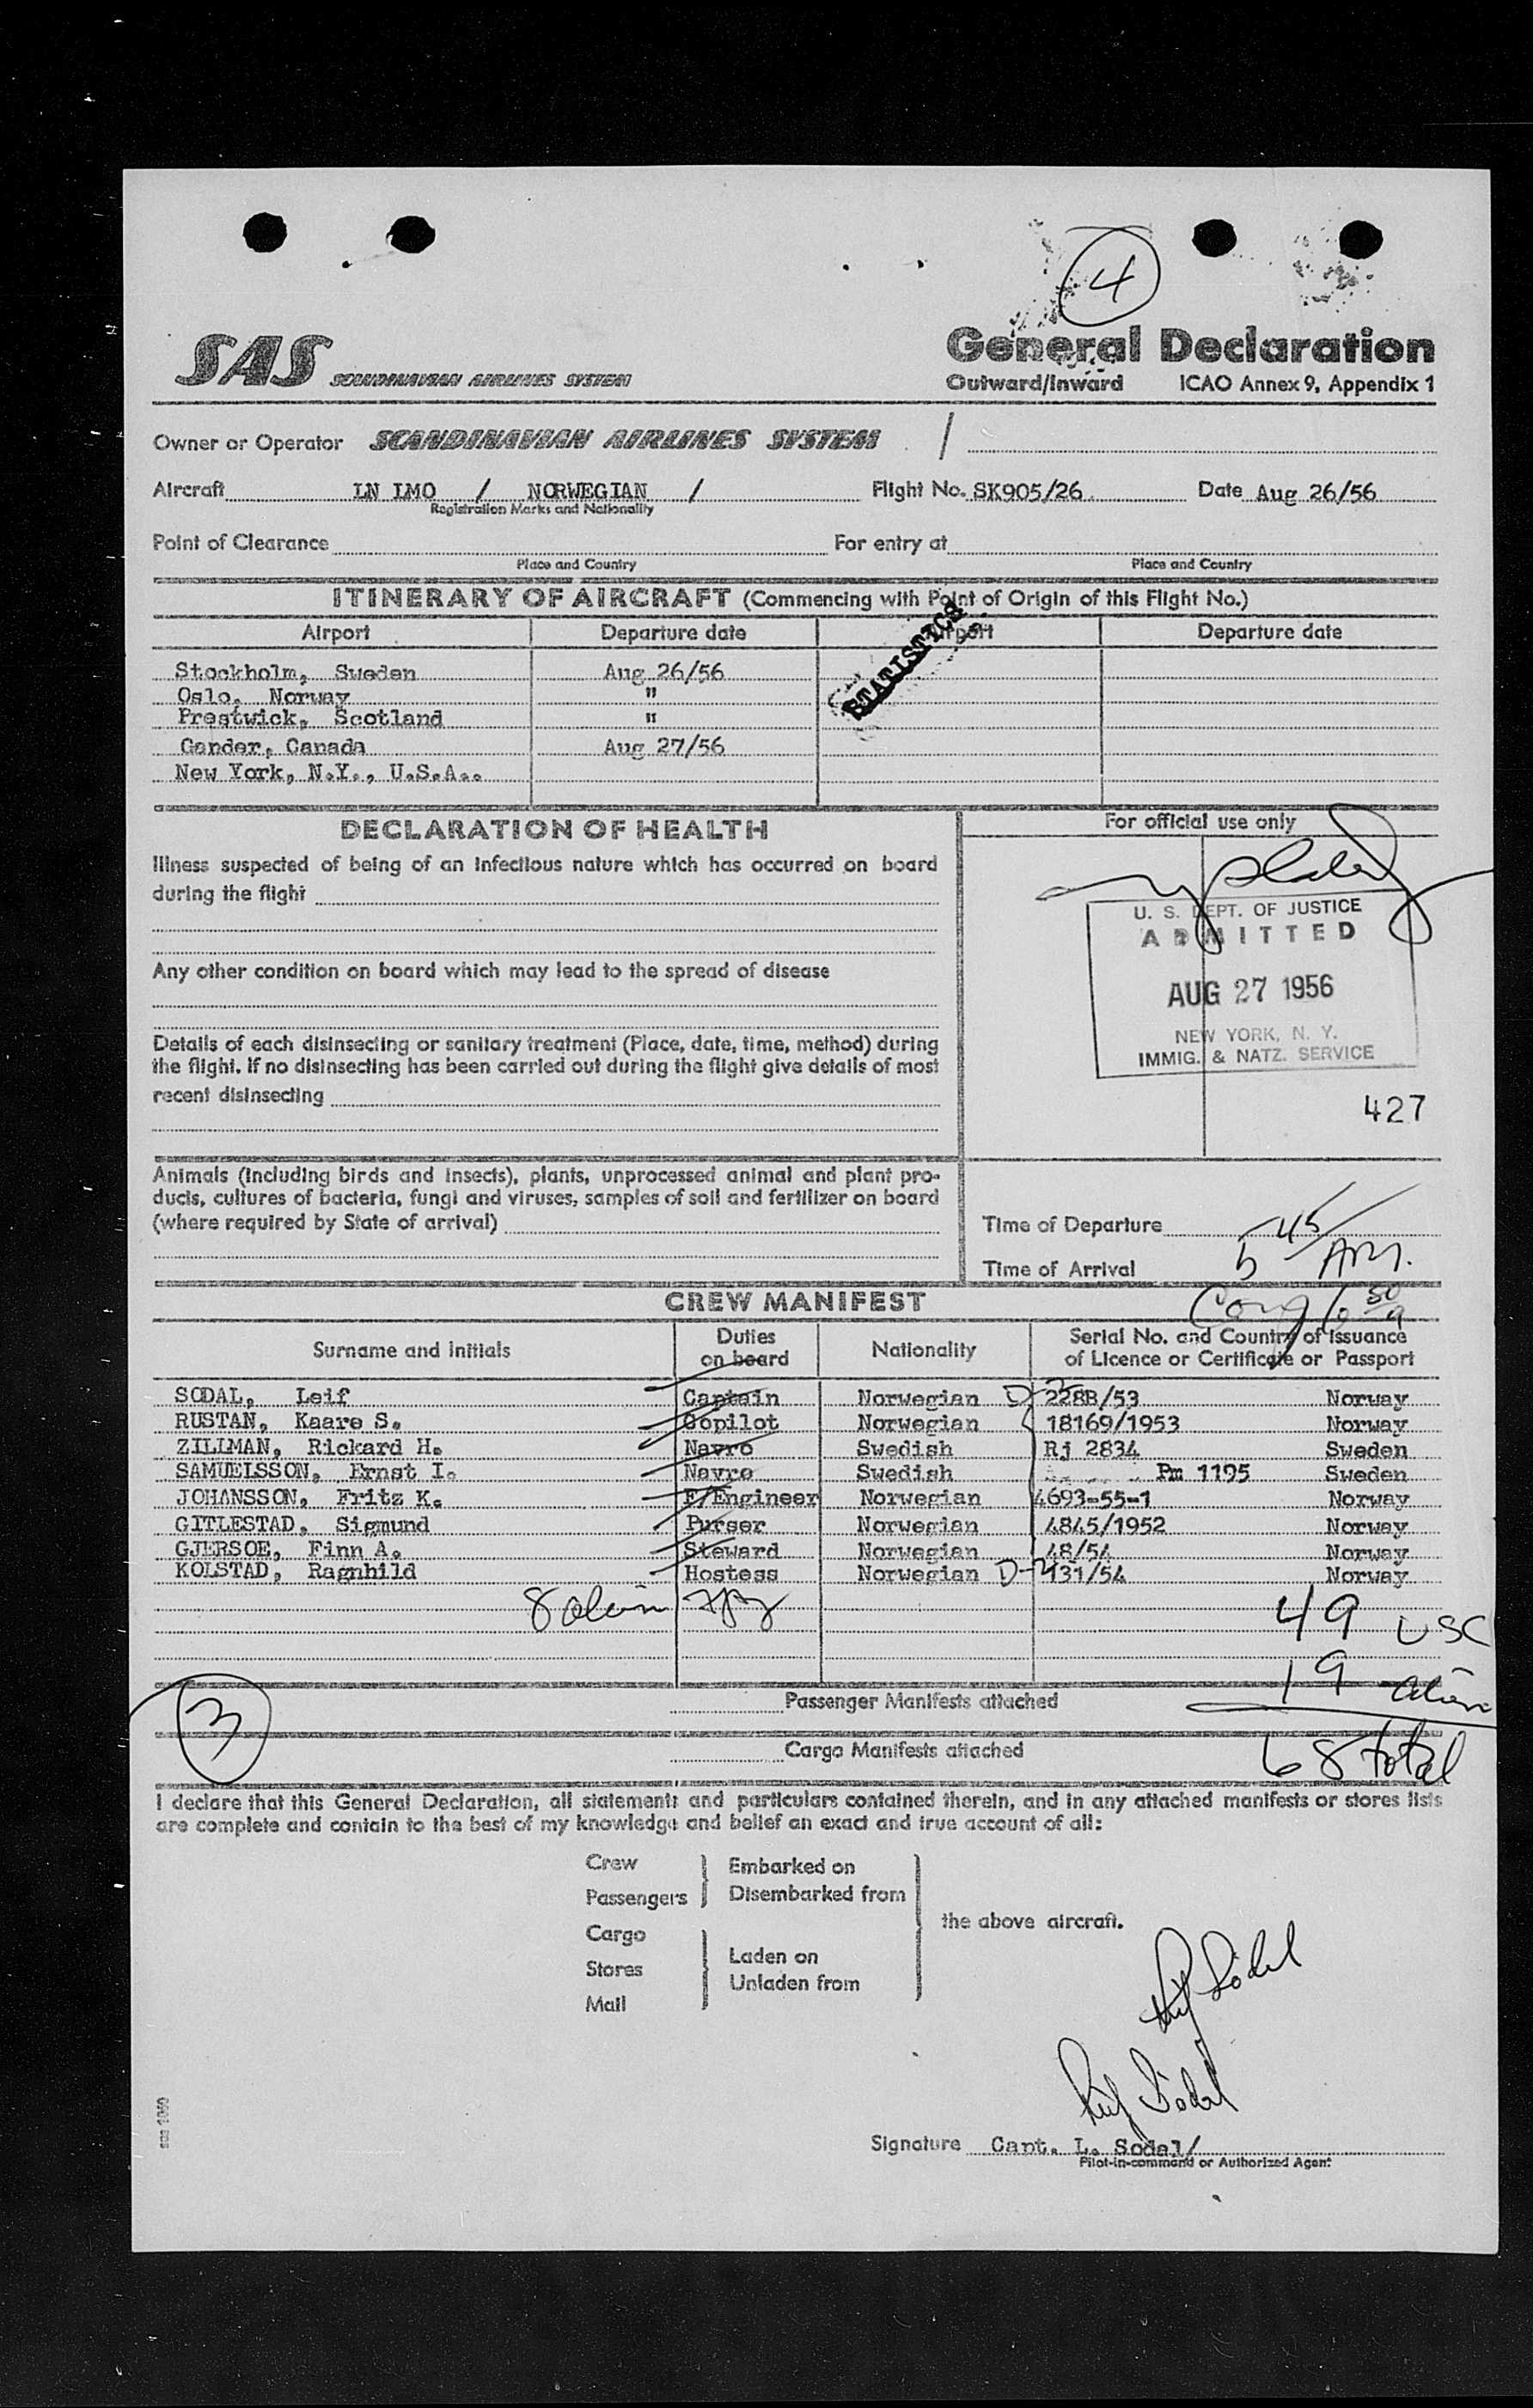 4
SAS SCANDINAVIAN AIRLINES SYSTEM
General Declaration
Outward/Inward ICAO Annex 9, Appendix 1
Owner or Operator SCANDINAVIAN AIRLINES SYSTEM /
Aircraft LN LMO / NORWEGIAN / Flight No. SK905/26 Date Aug 26/56
Registration Marks and Nationality
Point of Clearance For entry at
Place and Country Place and Country
ITINERARY OF AIRCRAFT (Commencing with Point of Origin of this Flight No.)
Airport Departure date Airport Departure date
STATISTICS
Stockholm, Sweden Aug 26/56
Oslo, Norway "
Prestwick, Scotland "
Gander, Canada Aug 27/56
New York, N.Y., U.S.A..
DECLARATION OF HEALTH
For official use only
Illness suspected of being of an infectious nature which has occurred on board
during the flight
Any other condition on board which may lead to the spread of disease
Details of each disinsecting or sanitary treatment (Place, date, time, method) during
the flight. If no disinsecting has been carried out during the flight give details of most
recent disinsecting
U. S. DEPT. OF JUSTICE
ADMITTED
AUG 27 1956
NEW YORK, N. Y.
IMMIG. & NATZ. SERVICE
427
Animals (including birds and insects), plants, unprocessed animal and plant pro-
ducts, cultures of bacteria, fungi and viruses, samples of soil and fertilizer on board
(where required by State of arrival)
Time of Departure
Time of Arrival 5 45 AM.
CREW MANIFEST
Surname and initials Duties on board Nationality Serial No. and Country of Issuance of Licence or Certificate or Passport
SODAL, Leif Captain Norwegian D-2 228B/53 Norway
RUSTAN, Kaare S. Copilot Norwegian 18169/1953 Norway
ZILLMAN, Rickard H. Navro Swedish Rj 2834 Sweden
SAMUELSSON, Ernst I. Navro Swedish Pm 1195 Sweden
JOHANSSON, Fritz K. F/Engineer Norwegian 4693-55-1 Norway
GITLESTAD, Sigmund Purser Norwegian 4845/1952 Norway
GJERSOE, Finn A. Steward Norwegian 48/54 Norway
KOLSTAD, Ragnhild Hostess Norwegian D-2 131/54 Norway
8 alien
49 USC
19 alien
68 total
3
Passenger Manifests attached
Cargo Manifests attached
I declare that this General Declaration, all statements and particulars contained therein, and in any attached manifests or stores lists
are complete and contain to the best of my knowledge and belief an exact and true account of all:
Crew
Passengers
Embarked on
Disembarked from
Cargo
Stores
Mail
Laden on
Unladen from
the above aircraft.
Leif Sodal
Leif Sodal
Signature Capt. L. Sodal/
Pilot-in-command or Authorized Agent
sas 1060